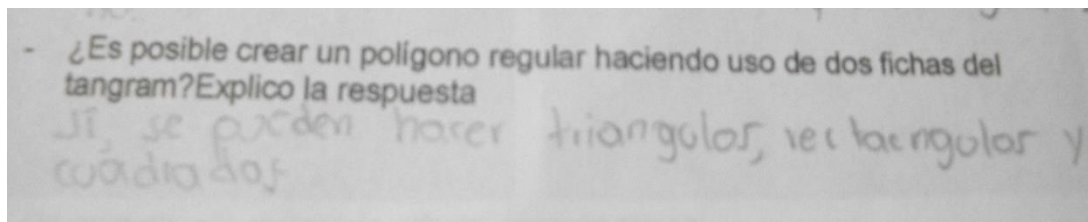 - ¿Es posible crear un polígono regular haciendo uso de dos fichas del
tangram?Explico la respuesta
Sí, se pueden hacer triangulos, rectangulos y
cuadrados